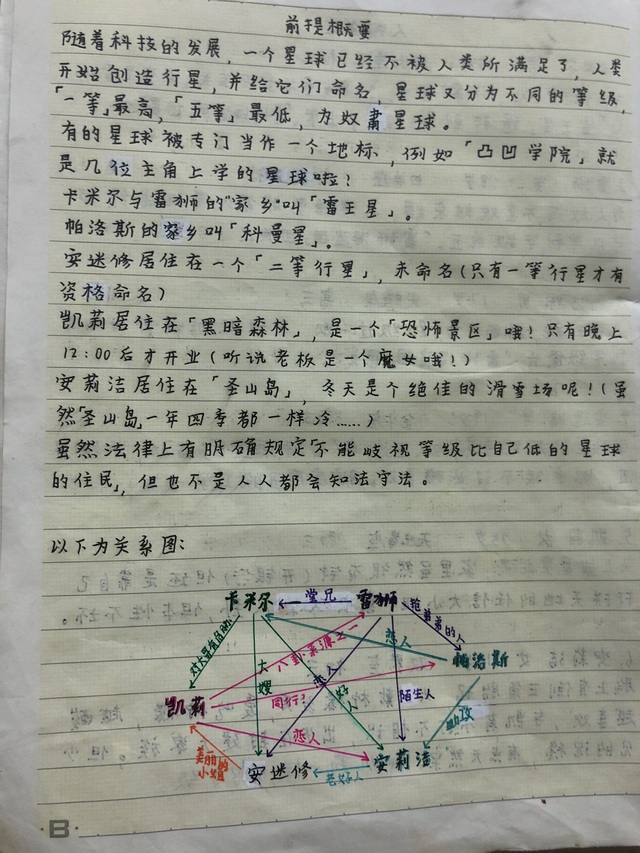 前提概要
随着科技的发展，一个星球已经不被人类所满足了，人类
开始创造行星，并给它们命名，星球又分为不同的等级，
「一等」最高，「五等」最低，为奴肃星球。
有的星球被专门当作一个地标，例如「凸凹学院」就
是几位主角上学的星球啦！
卡米尔与雷狮的"家乡"叫「雷王星」。
帕洛斯的家乡叫「科曼星」。
安迷修居住在一个「二等行星」，未命名(只有一等行星才有
资格命名)
凯莉居住在「黑暗森林」，是一个「恐怖景区」哦！只有晚上
12:00后才开业(听说老板是一个魔女哦！)
安莉洁居住在「圣山岛」，冬天是个绝佳的滑雪场呢！(虽
然「圣山岛」一年四季都一样冷……)
虽然法律上有明确规定「不能歧视等级比自己低的星球
的住民」，但也不是人人都会知法守法。
以下为关系图：
卡米尔 堂兄 雷狮
抢弟弟的人
恋人
帕洛斯
八卦来源之一
大嫂
恋人
好人
同行？
陌生人
凯莉
恋人
美丽的
小姐
安迷修
老好人
安莉洁
B